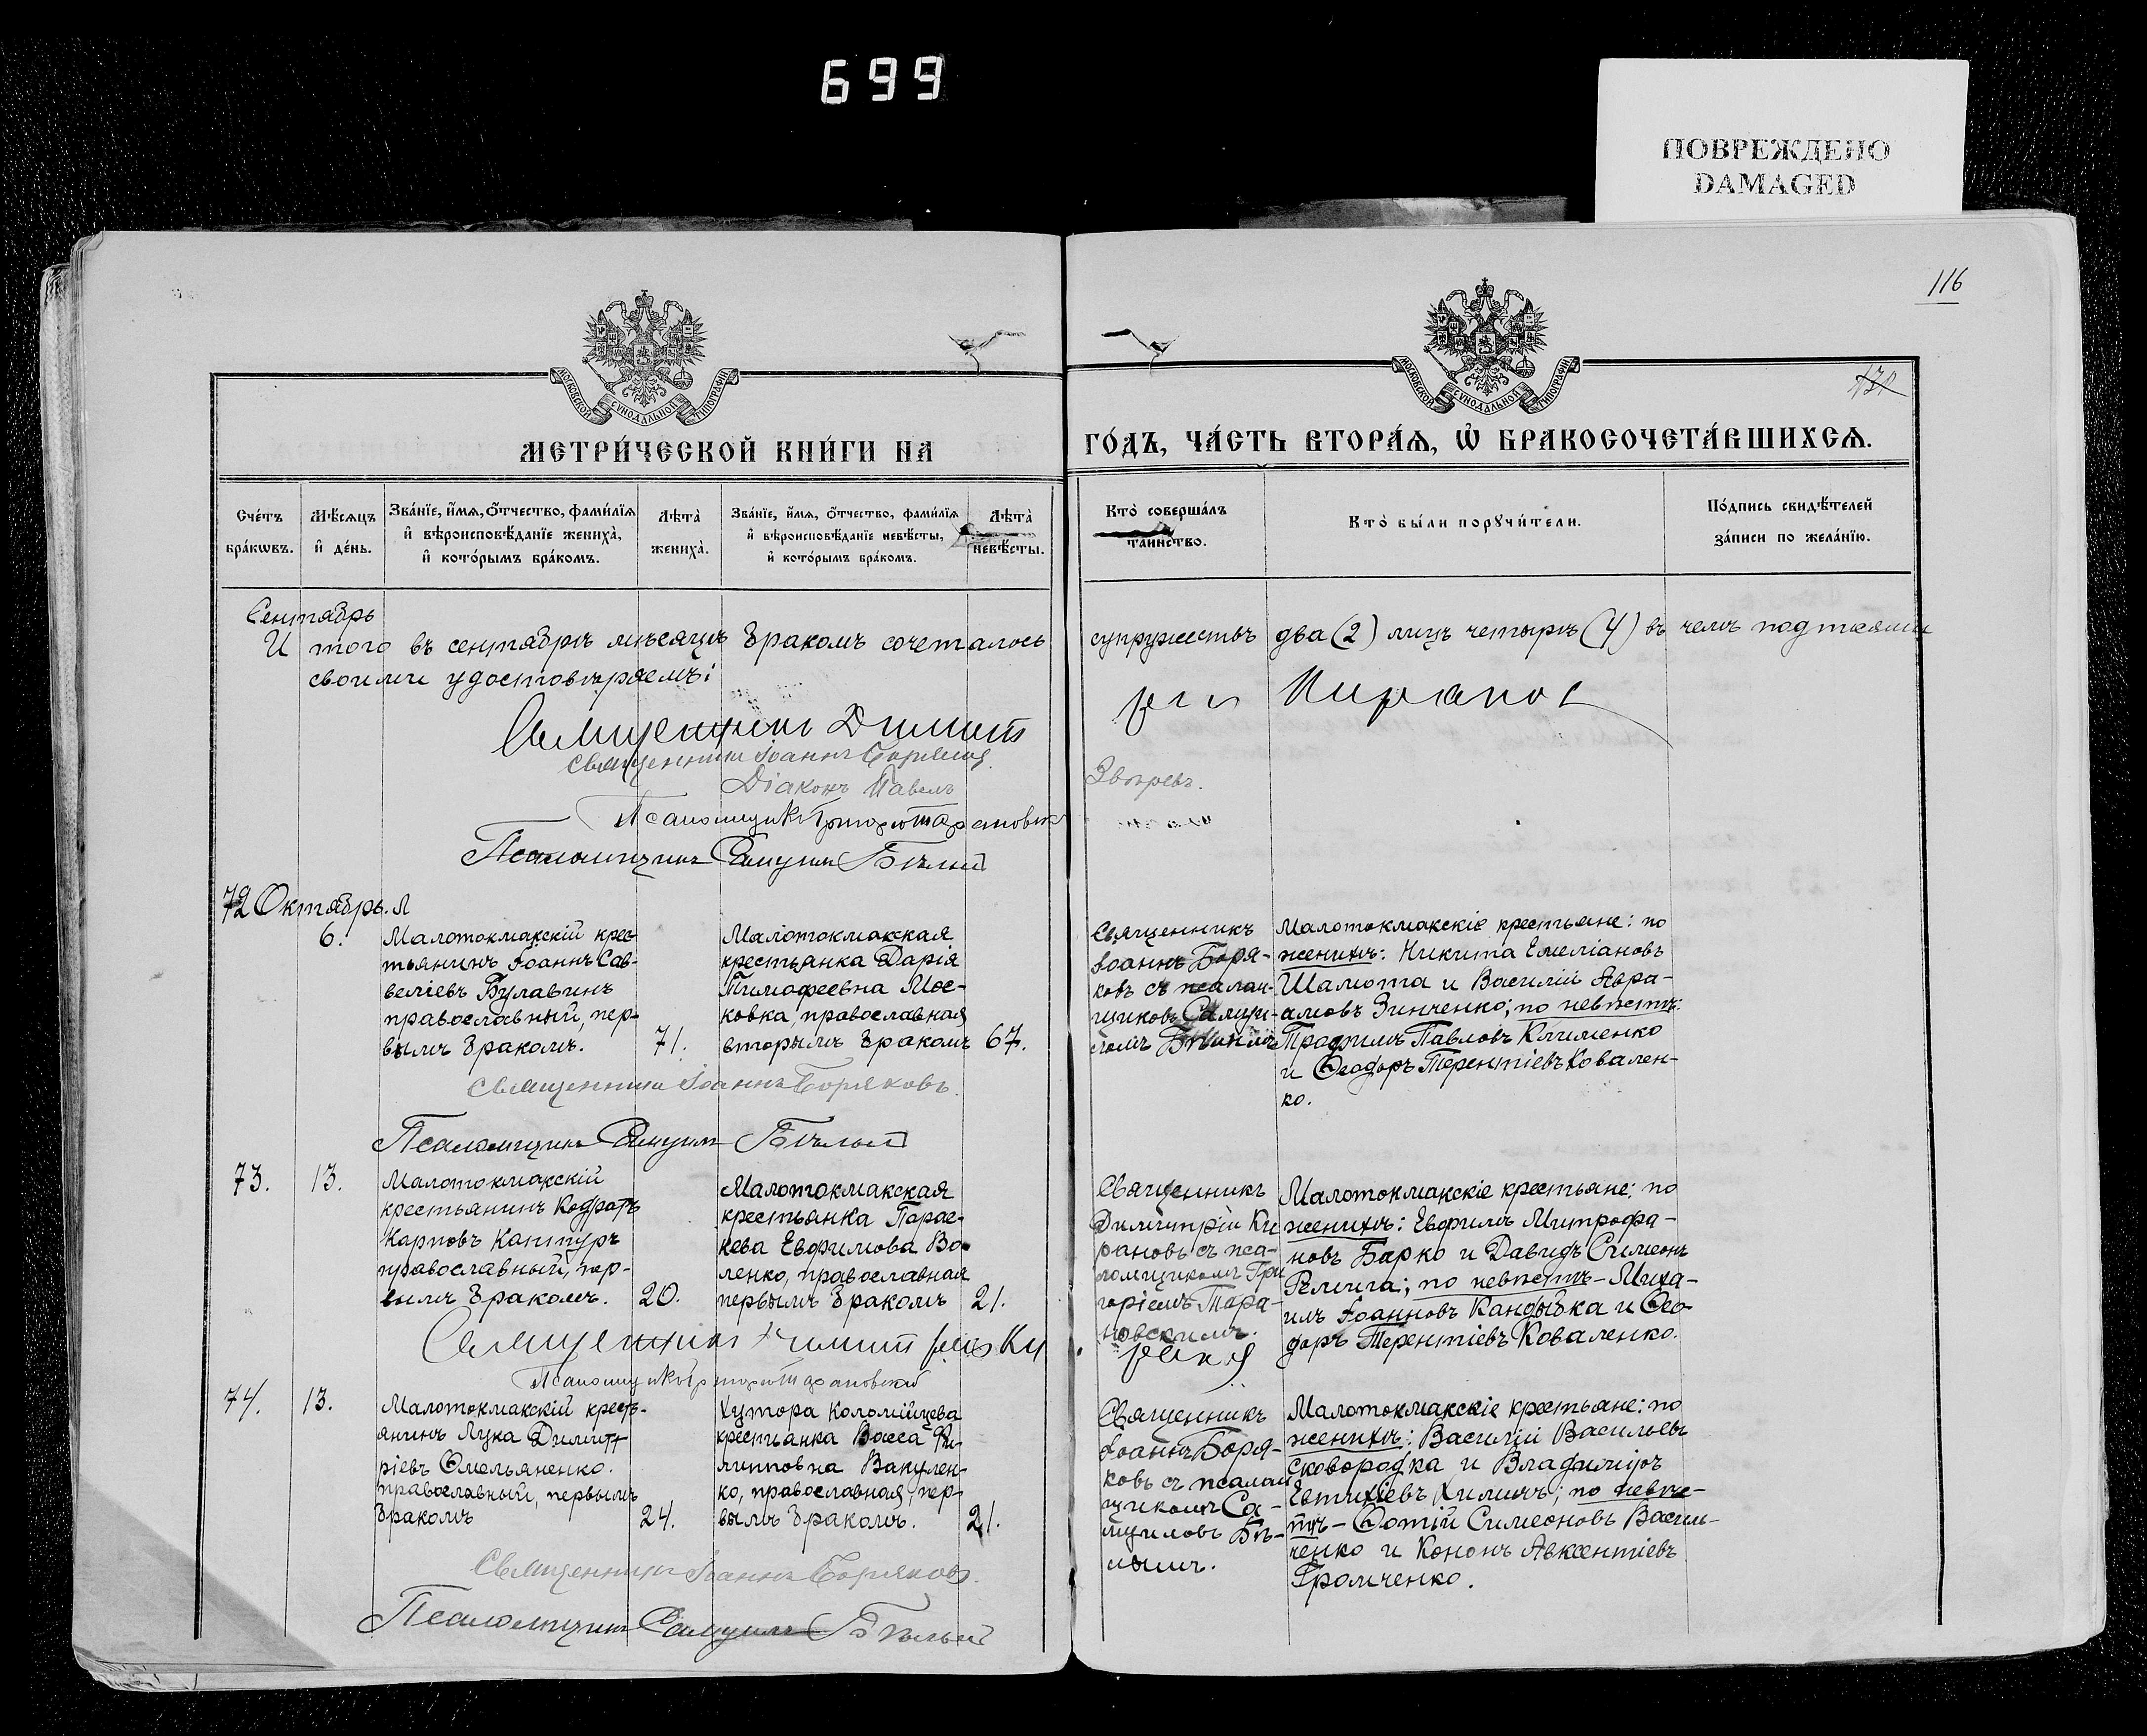 699
ПОВРЕЖДЕНО
DAMAGED
116
МОСКОВСКОЙ СѴНОДАЛЬНОЙ ТИПОГРАФІИ
МОСКОВСКОЙ СѴНОДАЛЬНОЙ ТИПОГРАФІИ
МЕТРИ́ЧЕСКОЙ КНИ́ГИ НА
ГО́ДЪ, ЧА́СТЬ ВТОРА́Ѧ, Ѡ БРАКОСОЧЕТА́ВШИХСѦ.
Сче́тъ бра́кѡвъ.
Мѣ́сѧцъ и҆ де́нь.
Зва́нїе, и҆́мѧ, ѻ҆́тчество, фами́лїѧ и҆ вѣроисповѣ́данїе жениха̀, и҆ кото́рымъ бра́комъ.
Лѣта̀ жениха̀.
Зва́нїе, и҆́мѧ, ѻ҆́тчество, фами́лїѧ и҆ вѣроисповѣ́данїе невѣ́сты, и҆ кото́рымъ бра́комъ.
Лѣта̀ невѣ́сты.
Кто̀ соверша́лъ та́инство.
Кто̀ бы́ли порꙋчи́тели.
По́дпись свидѣ́телей за́писи по жела́нїю.
Сентябрь
И того въ сентябрѣ мѣсяцѣ бракомъ сочеталось супружествъ два (2) лицъ четырѣ (4) въ чемъ подписями
своими удостовѣряемъ:
Священникъ Димитрій Кирановъ
Священникъ Іоаннъ Боряковъ
Діаконъ Павелъ Звѣревъ.
Псаломщикъ Григорій Тарановскій
Псаломщикъ Самуилъ Бѣлый
72 Октябрь.
6.
Малотокмакскій крес-
тьянинъ Іоаннъ Сав-
веліевъ Булавинъ
православный, пер-
вымъ бракомъ.
71.
Малотокмакская
крестьянка Дарія
Тимофеевна Мос-
ковка, православная
вторымъ бракомъ
67.
Священникъ
Іоаннъ Боря-
ковъ съ псалом-
щиковъ Самуи-
ломъ Бѣлымъ
Малотокмакскіе крестьяне: по
женихѣ: Никита Емеліановъ
Шамота и Василій Авра-
амовъ Зинченко; по невѣстѣ:
Трофимъ Павловъ Клименко
и Ѳеодоръ Терентіевъ Ковален-
ко.
Священникъ Іоаннъ Боряковъ.
Псаломщикъ Самуилъ Бѣлый
73.
13.
Малотокмакскій
крестьянинъ Кодратъ
Карповъ Кантуръ
православный, пер-
вымъ бракомъ.
20.
Малотокмакская
крестьянка Парас-
кева Евфимова Во-
ленко, православная
первымъ бракомъ
21.
Священникъ
Димитрій Ки
рановъ съ пса-
ломщикомъ Гри
горіемъ Тара-
новскимъ.
Малотокмакскіе крестьяне: по
женихѣ: Евфимъ Митрофа-
новъ Барко и Давидъ Симеонъ
Релига; по невѣстѣ - Миха-
илъ Іоанновъ Кандыбка и Ѳео-
доръ Терентіевъ Коваленко.
Священникъ Димитрій Кирановъ
Псаломщикъ Григорій Тарановскій
74.
13.
Малотокмакскій кресть-
янинъ Лука Димит-
ріевъ Омельяненко.
православный, первымъ
бракомъ
24.
Хутора Коломійцева
крестьянка Васса Фи-
липповна Вакулен-
ко, православная, пер-
вымъ бракомъ.
21.
Священникъ
Іоаннъ Боря-
ковъ съ псалом
щикомъ Са-
муиловъ Бѣ-
лымъ.
Малотокмакскіе крестьяне: по
женихѣ: Василій Васильевъ
Сковородка и Владиміръ
Евтихіевъ Химичъ; по невѣс-
тѣ - Фотій Симеоновъ Василь-
ченко и Кононъ Авксентіевъ
Громченко.
Священникъ Іоаннъ Боряковъ.
Псаломщикъ Самуилъ Бѣлый